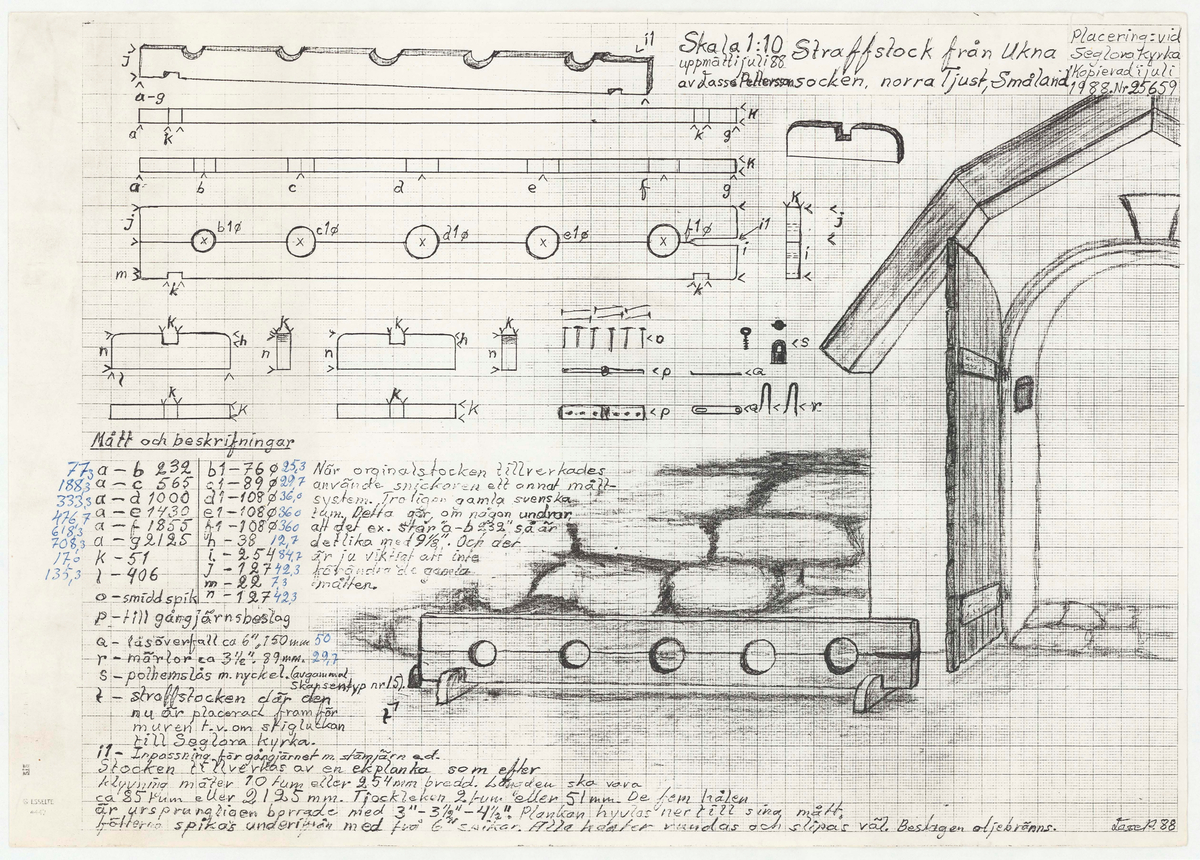 Skala 1:10
uppmätt i juli 88
av Lasse Pettersson
Straffstock från Ukna
socken, norra Tjust, Småland
Placering: vid
Seglora Kyrka
Kopierad i juli
1988. Nr 25659
j
i1
a-g
a
k
k
g
k
a
b
c
d
e
f
g
k
j
b1ø
c1ø
d1ø
e1ø
f1ø
i1
i
m
k
k
k
j
i
k
n
h
l
k
n
k
h
k
n
o
p
s
q
k
k
k
k
p
q
r
Mått och beskrifningar
77,3 a - b 232
188,3 a - c 565
333,3 a - d 1000
476,7 a - e 1430
618,3 a - f 1855
708,3 a - g 2125
17,0 k - 51
135,3 l - 406
b1 - 76 ø 25,3
c1 - 89 ø 29,7
d1 - 108 ø 36,0
e1 - 108 ø 36,0
f1 - 108 ø 36,0
h - 38 12,7
i - 254 84,7
j - 127 42,3
m - 22 7,3
n - 127 42,3
När orginalstocken tillverkades
använde snickaren ett annat mått-
system. Troligen gamla svenska
tum. Detta gör, om någon undrar
att det ex. står "a-b 232" så är
det lika med 9 1/8". Och det
är ju viktigt att inte
förändra de gamla
måtten.
o - smidd spik
p - till gångjärnsbeslag
q - låsöverfall ca 6", 150 mm 50
r - märlor ca 3½", 89 mm. 29,7
s - polhemslås m. nyckel. (av gammal
skapsentyp nr 15).
t - straffstocken där den
nu är placerad framför
muren t.v. om stigluckan
till Seglora kyrka.
t
i1 - Inpassning för gångjärnet m. stämjärn e.d.
Stocken tillverkas av en ekplanka som efter
klyvning mäter 10 tum eller 254 mm bredd. Längden ska vara
ca 85 tum eller 2125 mm. Tjockleken 2 tum eller 51 mm. De fem hålen
är ursprungligen borrade med 3"-3½"-4¼". Plankan hyvlas ner till sina mått.
Fötterna spikas underifrån med två 6" spikar. Alla kanter rundas och slipas väl. Beslagen oljebränns.
Lasse P. 88